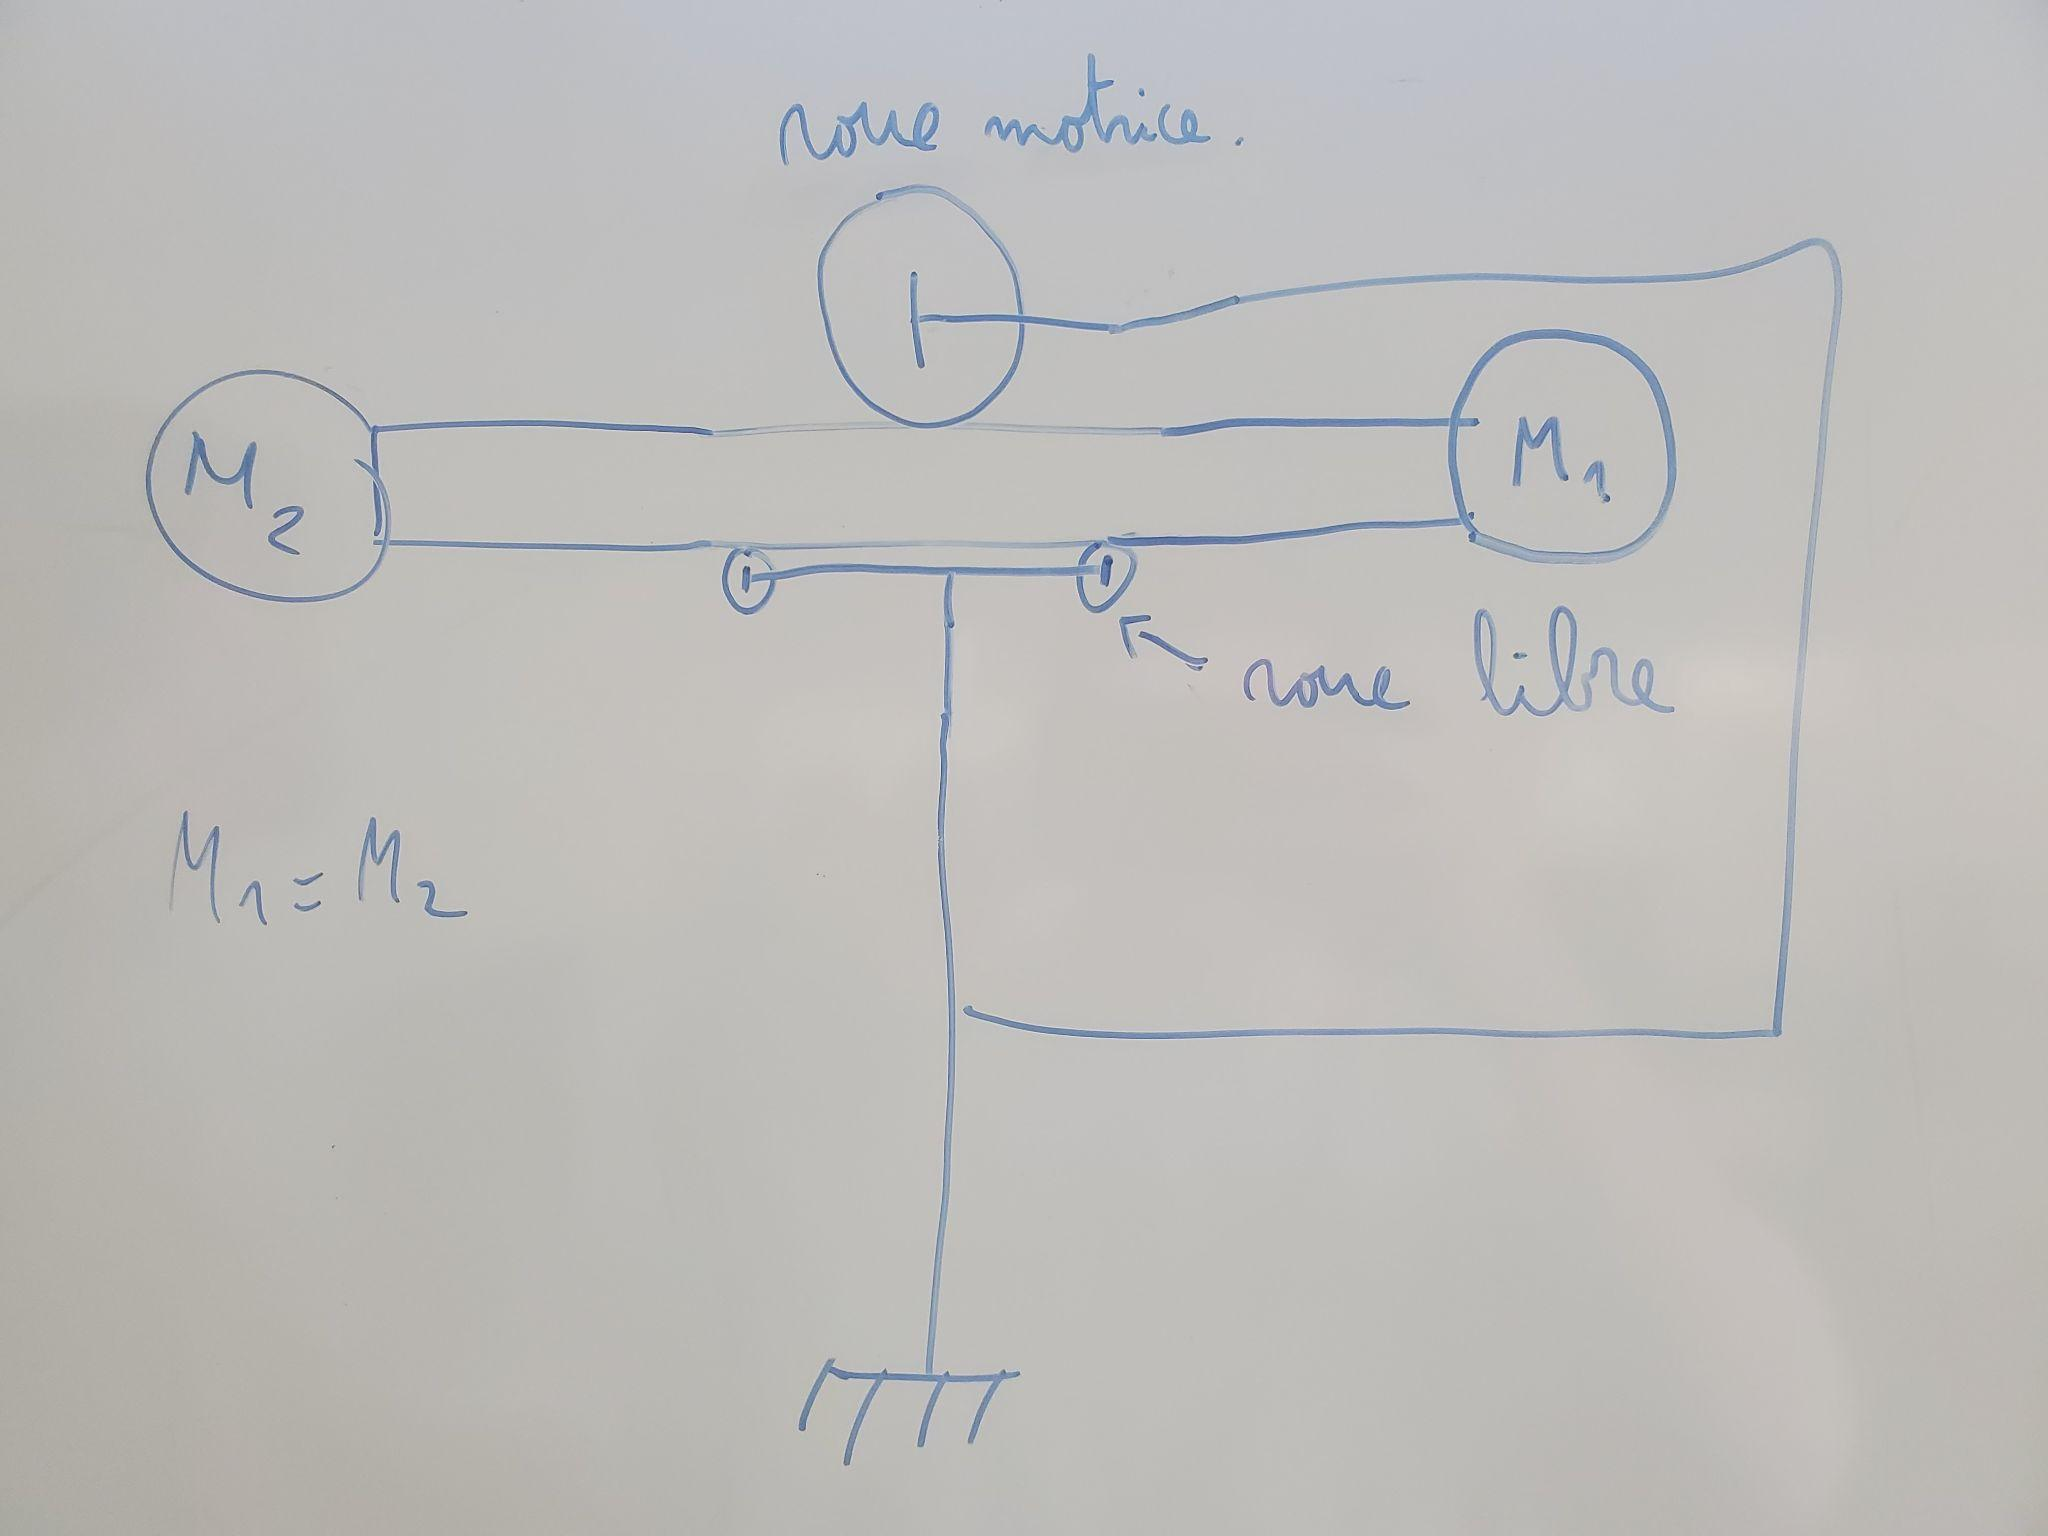 roue motrice.
M2
M1
roue libre
M1 = M2